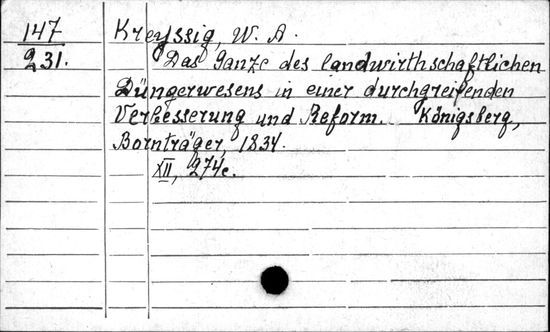 147 Kreyssig, W. A.
231. Das Ganze des landwirthschaftlichen
Düngerwesens in einer durchgreifenden
Verbesserung und Reform. Königsberg,
Bornträger, 1834.
XII, 274c.